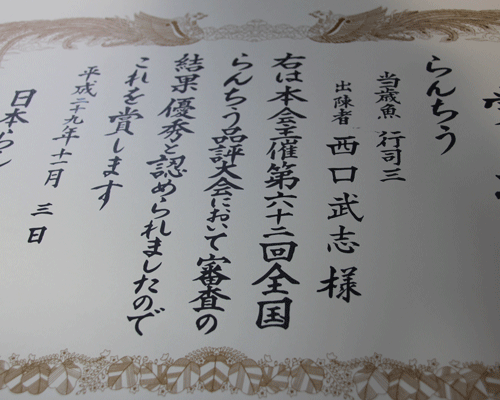 らんちう
当歳魚 行司三
出陳者 西口武志様
右は本会主催第六十二回全国
らんちう品評大会において審査の
結果優秀と認められましたので
これを賞します
平成二十九年十一月三日
日本らん